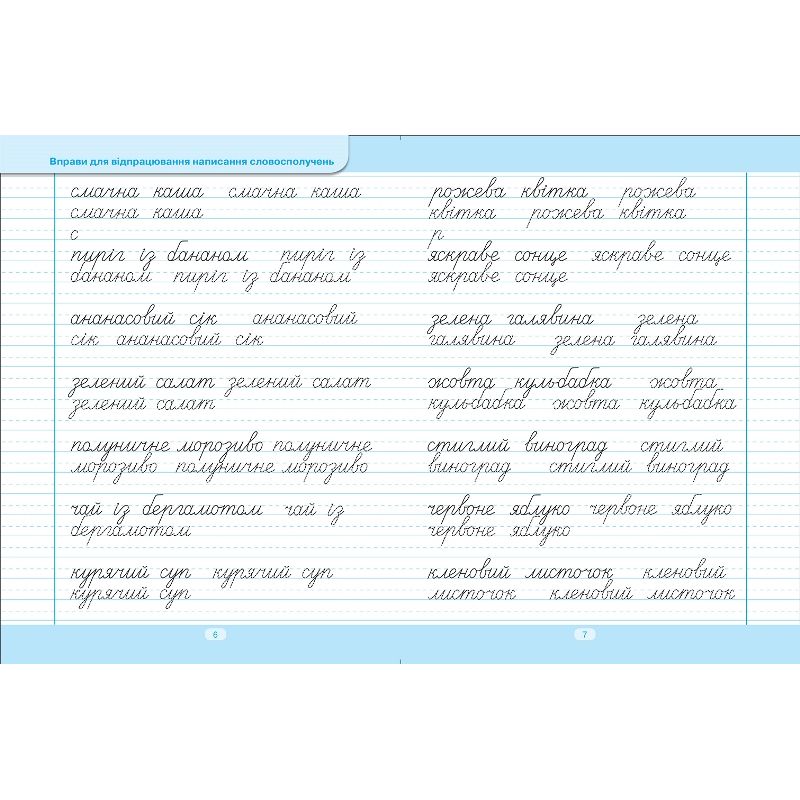 Вправи для відпрацювання написання словосполучень
смачна каша смачна каша
смачна каша
с
пиріг із бананом пиріг із
бананом пиріг із бананом
ананасовий сік ананасовий
сік ананасовий сік
зелений салат зелений салат
зелений салат
полуничне морозиво полуничне
морозиво полуничне морозиво
чай із бергамотом чай із
бергамотом
курячий суп курячий суп
курячий суп
6
рожева квітка рожева
квітка рожева квітка
р
яскраве сонце яскраве сонце
яскраве сонце
зелена галявина зелена
галявина зелена галявина
жовта кульбабка жовта
кульбабка жовта кульбабка
стиглий виноград стиглий
виноград стиглий виноград
червоне яблуко червоне яблуко
червоне яблуко
кленовий листочок кленовий
листочок кленовий листочок
7